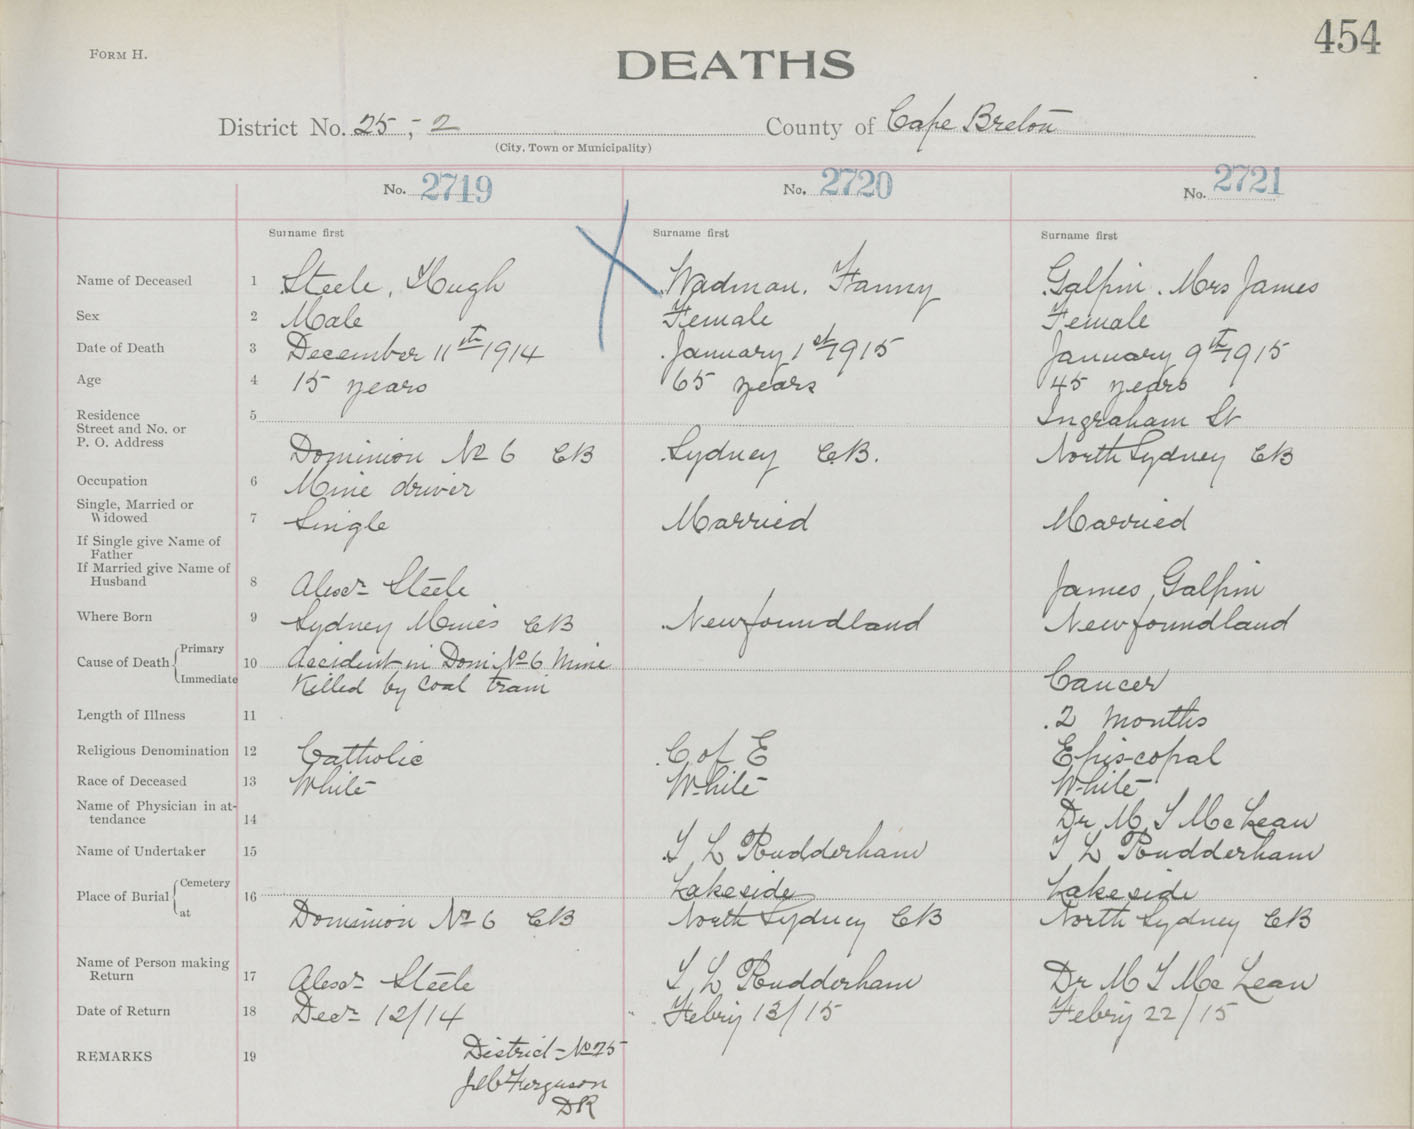 454
FORM H.
DEATHS
District No. 25, - 2 County of Cape Breton
(City, Town or Municipality)
No. 2719 No. 2720 No. 2721
Surname first Surname first Surname first
Name of Deceased 1 Steele, Hugh Wadman, Fanny Galpin, Mrs James
Sex 2 Male Female Female
Date of Death 3 December 11th 1914 January 1st 1915 January 9th 1915
Age 4 15 years 65 years 45 years
Residence 5 Ingraham St
Street and No. or
P. O. Address Dominion No 6 CB Sydney C.B. North Sydney CB
Occupation 6 Mine driver
Single, Married or
Widowed 7 Single Married Married
If Single give Name of
Father
If Married give Name of
Husband 8 Alexr Steele James Galpin
Where Born 9 Sydney Mines CB Newfoundland Newfoundland
Cause of Death Primary 10 Accident in Domi No 6 Mine
Immediate Killed by coal train Cancer
Length of Illness 11 2 months
Religious Denomination 12 Catholic C of E Episcopal
Race of Deceased 13 White White White
Name of Physician in at-
tendance 14 Dr M. T McLean
Name of Undertaker 15 T L Rudderham T L Rudderham
Place of Burial Cemetery 16 Lakeside Lakeside
at Dominion No 6 CB North Sydney CB North Sydney CB
Name of Person making
Return 17 Alexr Steele T L Rudderham Dr M T McLean
Date of Return 18 Decr 12/14 Febry 13/15 Febry 22/15
REMARKS 19 District No 25
Ferguson
DR